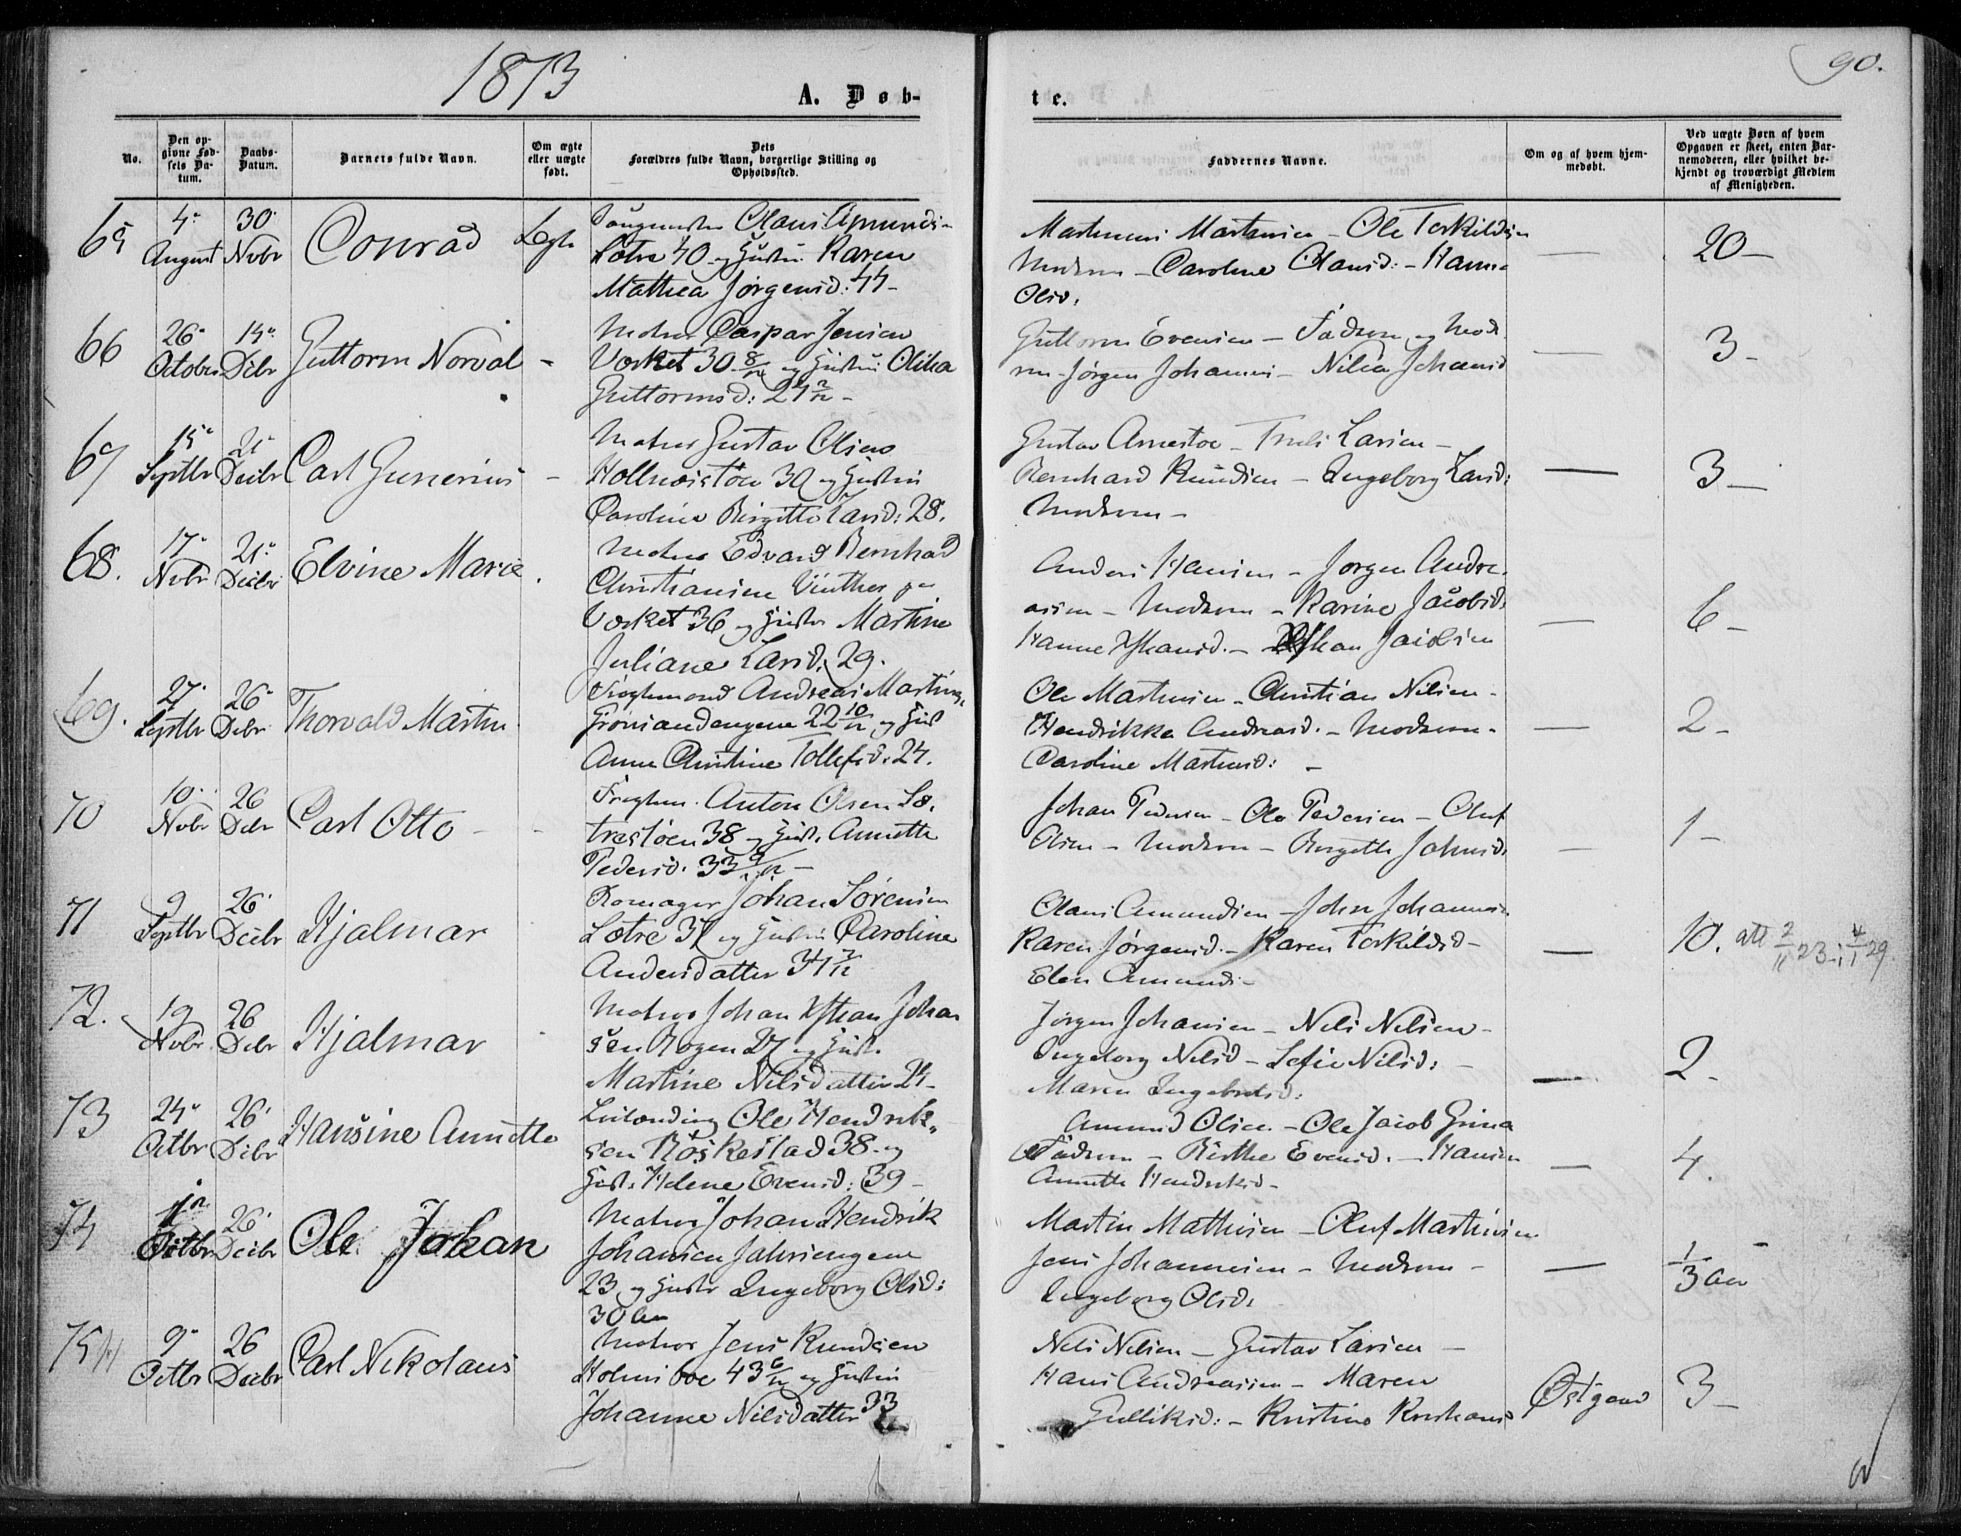 1873
90.
A. Døb-
te.
No.
Den opgivne Fødsels Datum.
Daabs-Datum.
Barnets fulde Navn.
Om ægte eller uægte født.
Dets Forældres fulde Navn, borgerlige Stilling og Opholdssted.
Faddernes Navne.
Om og af hvem hjemmedøbt.
Ved uægte Børn af hvem Opgaven er skeet, enten Barnemoderen, eller hvilket bekjendt og troværdigt Medlem af Menigheden.
65 4 August 30 Novbr Conrad Ægte
Olaus Amunds-
Lætre 40 og Hustru Karen
Mathea Jørgensd: 44-
Martinius Martinsen - Ole Torkildsen
Moderen - Caroline Olausd: - Hanna
Olsd.
20-
66 26 October Decbr Guttorm Norval -
Matros Caspar Jensen
Værket 30 8/12 og Hustru Olika
Guttormsd: 24 2/12 -
Guttorm Evensen - Faderen og Mode
ren - Jørgen Johannes - Nilia Johansd
3-
67 15 Septbr 21 Decbr Carl Gunerius -
Matros Gustav Olsen
30 og Hustru
Caroline Birgitte Larsd: 28.
Gustav - Truls Larsen -
Bernhard Knudsen - Ingeborg Larsd:
Moderen -
3-
68. 17 Novbr 21 Decbr Elvine Marie
Matros Edvard Bernhard
Christiansen Vinther
Værket 36 og Hustru Martine
Juliane Larsd. 29.
Anders Hansen - Jørgen Andre
assen - Moderen - Karine Jacobsd:
Hanne - Johan Jacobsen
6-
69. 27 Septbr 26 Decbr Thorvald Martin
Andreas Martins.
Grønsandengene 22 10/12 og Hust
Anne Christine Tollefsd. 24.
Ole Martinsen - Christian Nilsen -
Hendrikke Andreasd. - Moderen -
Caroline Martinsd: -
2-
70 10 Novbr 26 Decbr Carl Otto -
Anton Olsen Sæ.
trestøen 38 og Hust. Annette
Pedersd. 33 9/12 -
Johan Pedersen - Ole Pedersen - Oluf
Olsen - Moderen - Birgitte Johnsd.
1-
71 9 Septbr 26 Decbr Hjalmar
Johan Sørensen
Lætre 37 og Hustru Caroline
Andersdatter 34 7/12
Olaus Amundsen - John Johannes
Karen Jørgensd. - Karen Torkildsd -
Elen Amunds -
10. att 2/11 23 4/1 29.
72. 19 Novbr 26 Decbr Hjalmar
Matros Johan Johan
sen Bogen 27 og Hust.
Martine Nilsdatter 24-
Jørgen Johansen - Nils Nilsen -
Ingeborg Nilsd - Sofie Nilsd: -
Maren Ingebretsd:
2-
73 24 Octbr 26 Decbr Hansine Annette
Ole Hendrik
sen Røskestad 38 og
Hust. Helene Evensd: 39 -
Amund Olsen - Ole Jacob
Faderen - Birthe Evensd. - Hansen
Annette Hendriksd -
4.
74 Octbr 26 Decbr Ole Johan
Matros Johan Hendrik
Johansen Jahrsengene
23 og Hustr Ingeborg Olsd:
30 Aar
Martin Mathisen - Oluf Martinsen
Jens Johannesen - Moderen -
Ingeborg Olsd.
1/3 Aar
75 9 Octbr 26 Decbr Carl Nikolaus
Matros Jens Knudsen
43 6/12 og Hustru
Johanne Nilsdatter 33
Nils Nilsen - Gustav Larsen -
Hans Andreassen - Maren
Gulliksd: - Kristine Kristians
Østgaard
3-